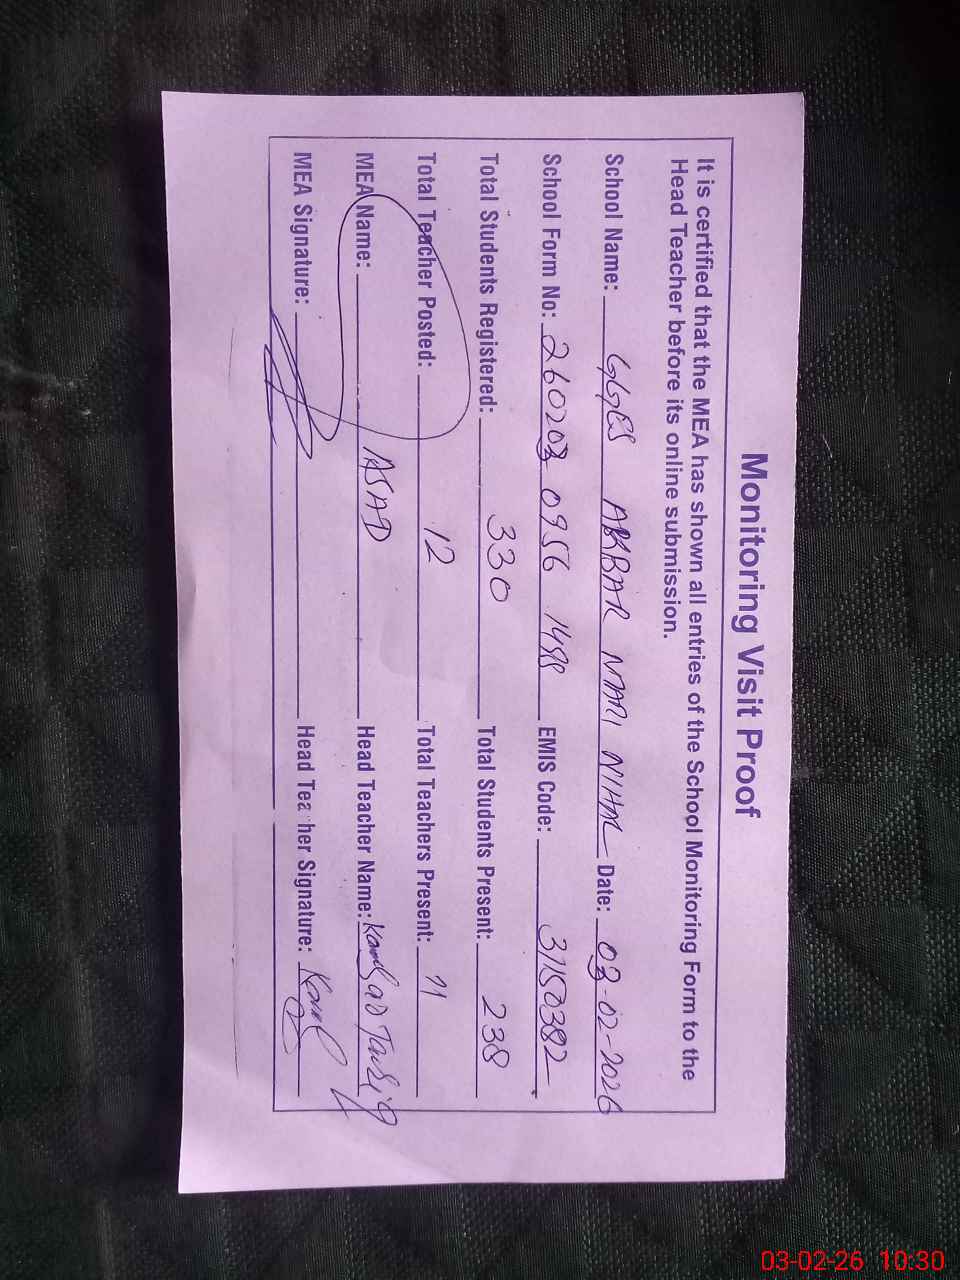 Monitoring Visit Proof
It is certified that the MEA has shown all entries of the School Monitoring Form to the
Head Teacher before its online submission.
School Name: GGES AKBAR MARI NIHAL Date: 03-02-2026
School Form No: 260203 0956 1498 EMIS Code: 37150382
Total Students Registered: 330 Total Students Present: 238
Total Teacher Posted: 12 Total Teachers Present: 11
MEA Name: ASAD Head Teacher Name:
MEA Signature: Head Teacher Signature:
03-02-26 10:30